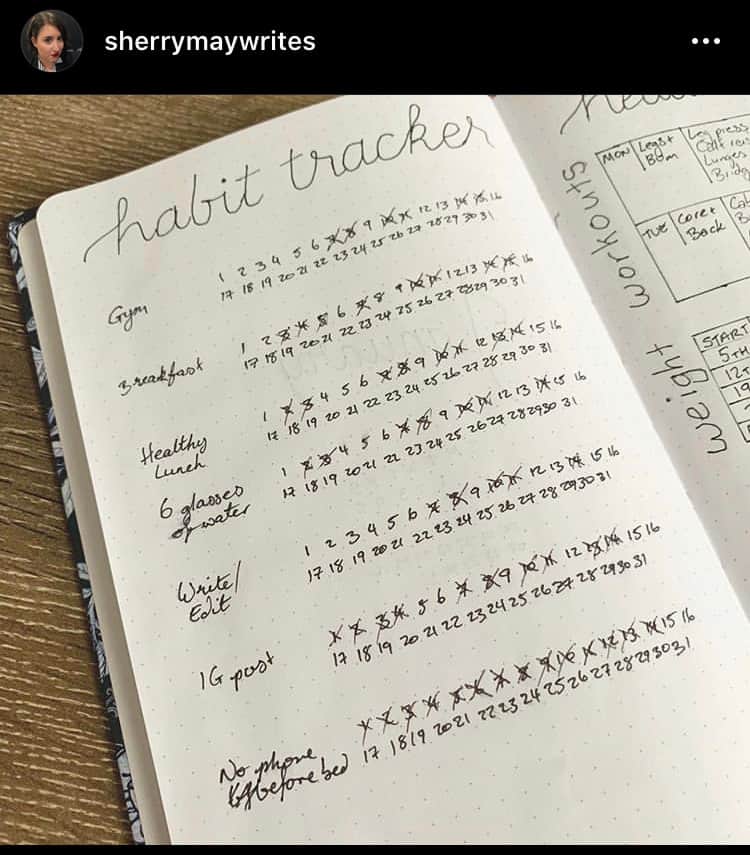 sherrymaywrites
habit tracker
Gym
1 2 3 4 5 6 7 8 9 10 11 12 13 14 15 16
17 18 19 20 21 22 23 24 25 26 27 28 29 30 31
Breakfast
1 2 3 4 5 6 7 8 9 10 11 12 13 14 15 16
17 18 19 20 21 22 23 24 25 26 27 28 29 30 31
Healthy
Lunch
1 2 3 4 5 6 7 8 9 10 11 12 13 14 15 16
17 18 19 20 21 22 23 24 25 26 27 28 29 30 31
6 glasses
of water
1 2 3 4 5 6 7 8 9 10 11 12 13 14 15 16
17 18 19 20 21 22 23 24 25 26 27 28 29 30 31
Write/
Edit
1 2 3 4 5 6 7 8 9 10 11 12 13 14 15 16
17 18 19 20 21 22 23 24 25 26 27 28 29 30 31
IG post
1 2 3 4 5 6 7 8 9 10 11 12 13 14 15 16
17 18 19 20 21 22 23 24 25 26 27 28 29 30 31
No phone
before bed
1 2 3 4 5 6 7 8 9 10 11 12 13 14 15 16
17 18 19 20 21 22 23 24 25 26 27 28 29 30 31
workouts
MON
Legs+
Bum
Leg press
Lunges
TUE
Core+
Back
weight
START
5TH